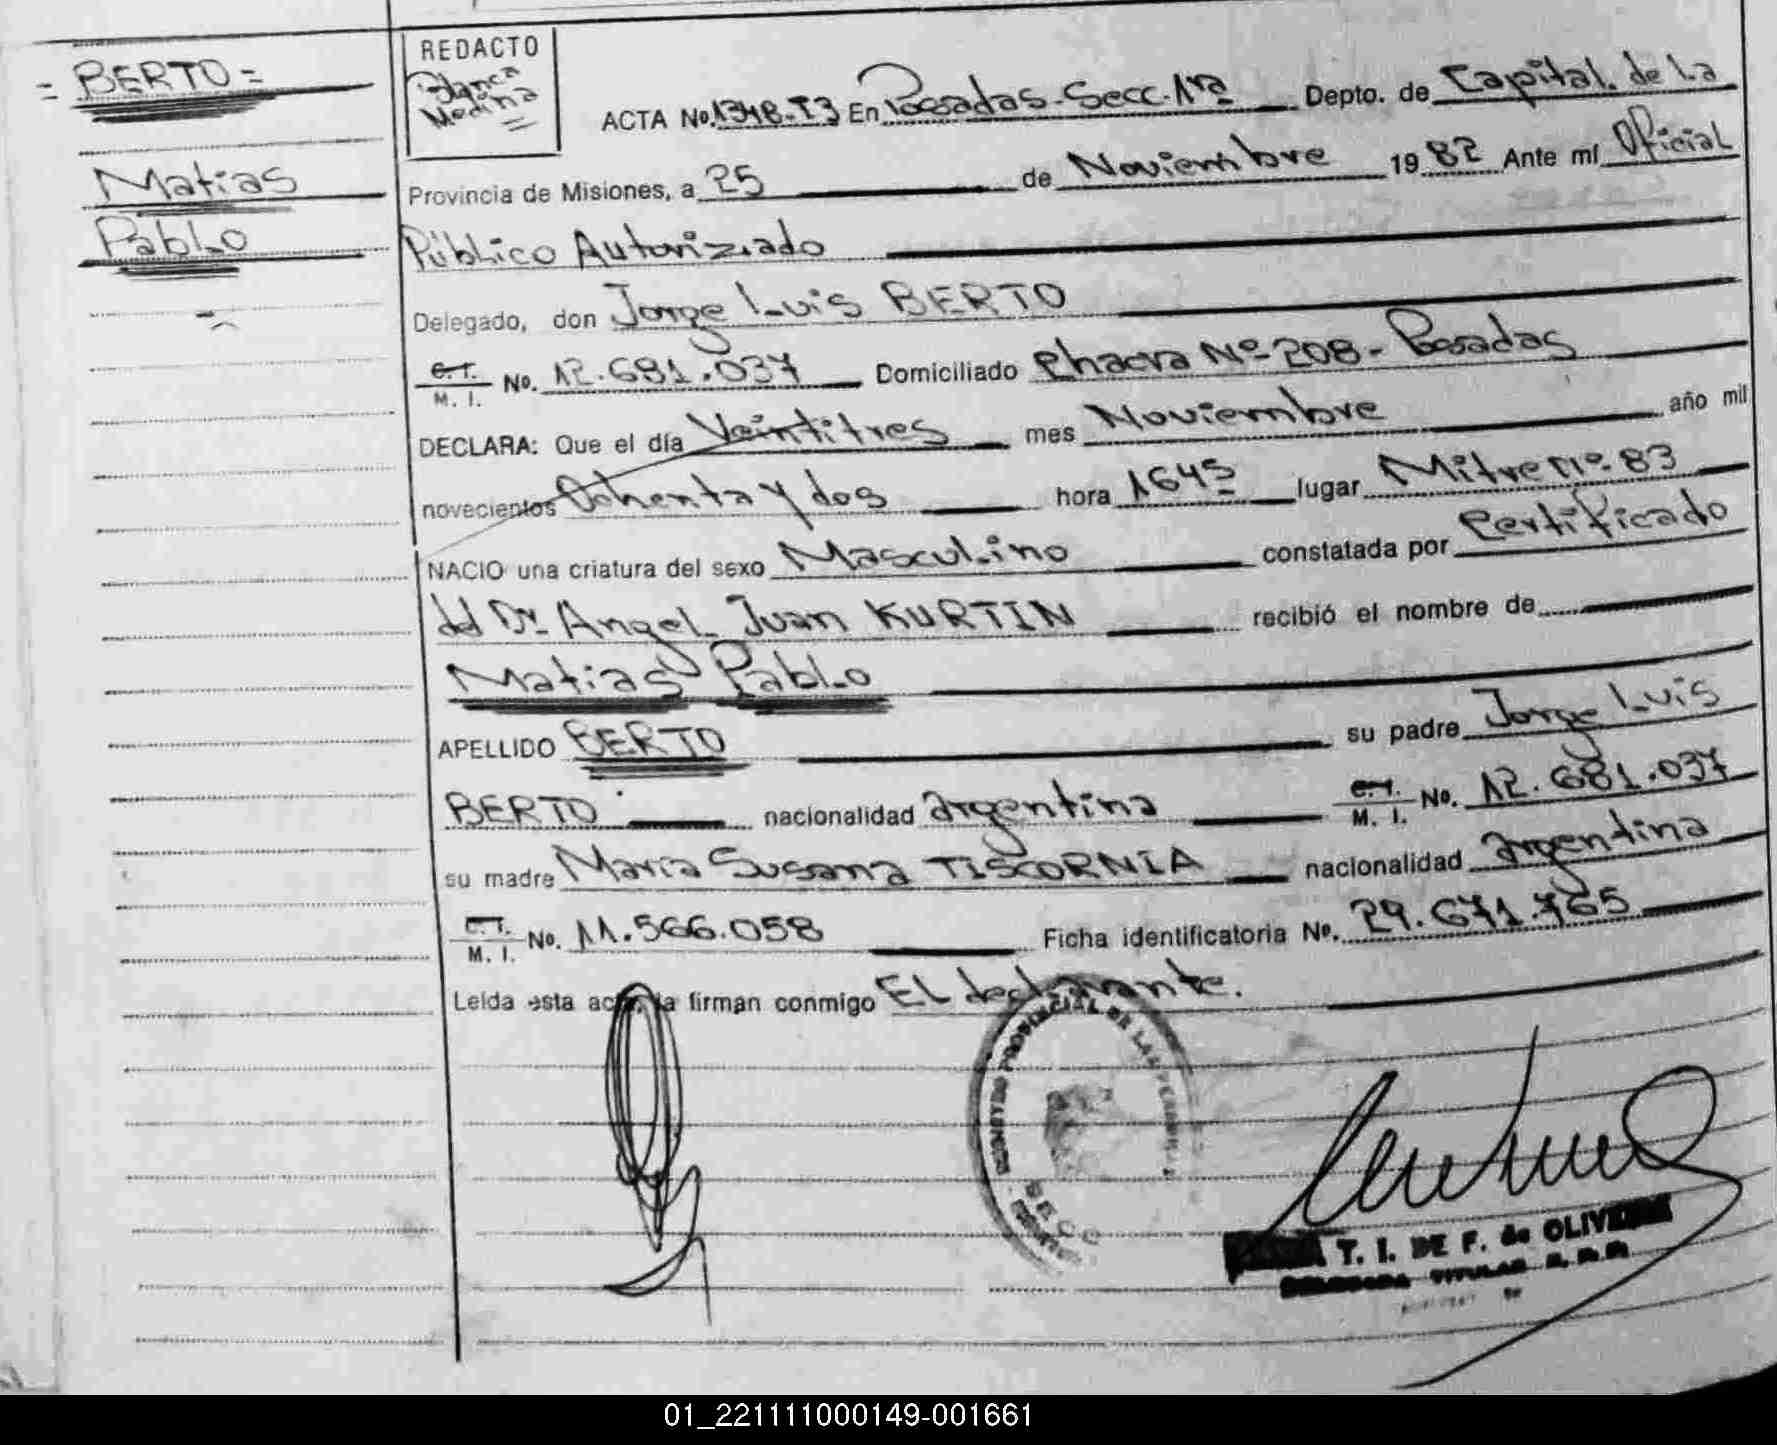 = BERTO =
Matias
Pablo
REDACTO
Blanca
Medina
ACTA No. 1348-T3 En Posadas-Secc.1ra Depto. de Capital. de La
Provincia de Misiones, a 25 de Noviembre 1982 Ante mí Oficial
Público Autorizado
Delegado, don Jorge Luis BERTO
C.I. M. I. No. 12.681.037 Domiciliado Chacra Nº 208- Posadas
DECLARA: Que el día Veintitres mes Noviembre año mil
novecientos Ochenta y dos hora 1645 lugar Mitre nº 83
NACIO una criatura del sexo Masculino constatada por Certificado
del Dr. Angel Juan KURTIN recibió el nombre de
Matias Pablo
APELLIDO BERTO su padre Jorge Luis
BERTO nacionalidad argentina C.I. M. I. No. 12.681.037
su madre María Susana TISCORNIA nacionalidad argentina
C.I. M. I. No. 11.566.058 Ficha identificatoria No. 29.671.765
Leída esta acta, la firman conmigo El declarante.
PROVINCIAL DE LAS
SECC
T. I. DE F. de OLIVEIRA
TITULAR
01_221111000149-001661